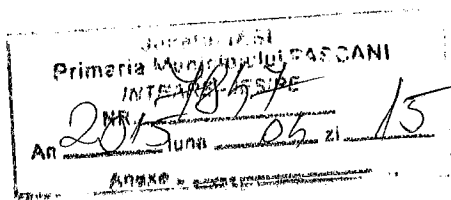 Judetul IASI
Primaria Municipiului PASCANI
INTRARE - IESIRE
NR.
An 2015 luna 05 zi 15
Anexe